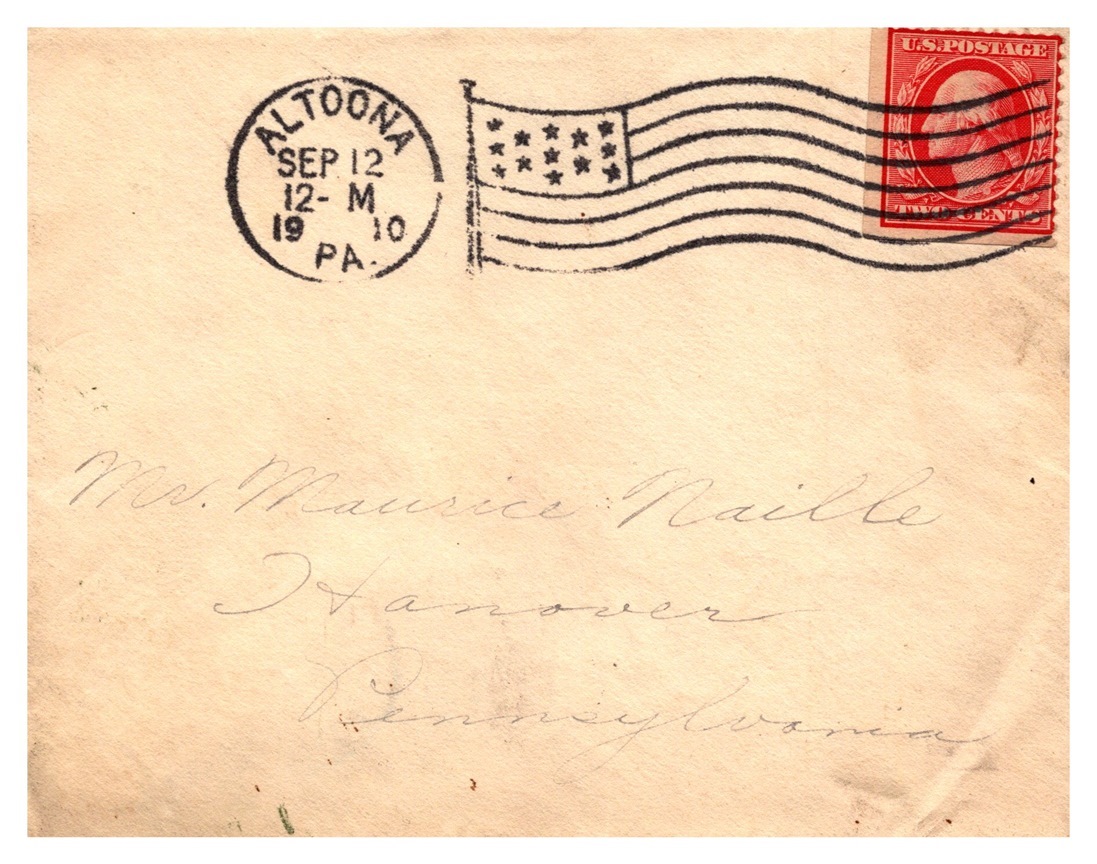 ALTOONA
SEP 12
12- M
19 10
PA.
U.S. POSTAGE
TWO CENTS
Mr. Maurice Naille
Hanover
Pennsylvania